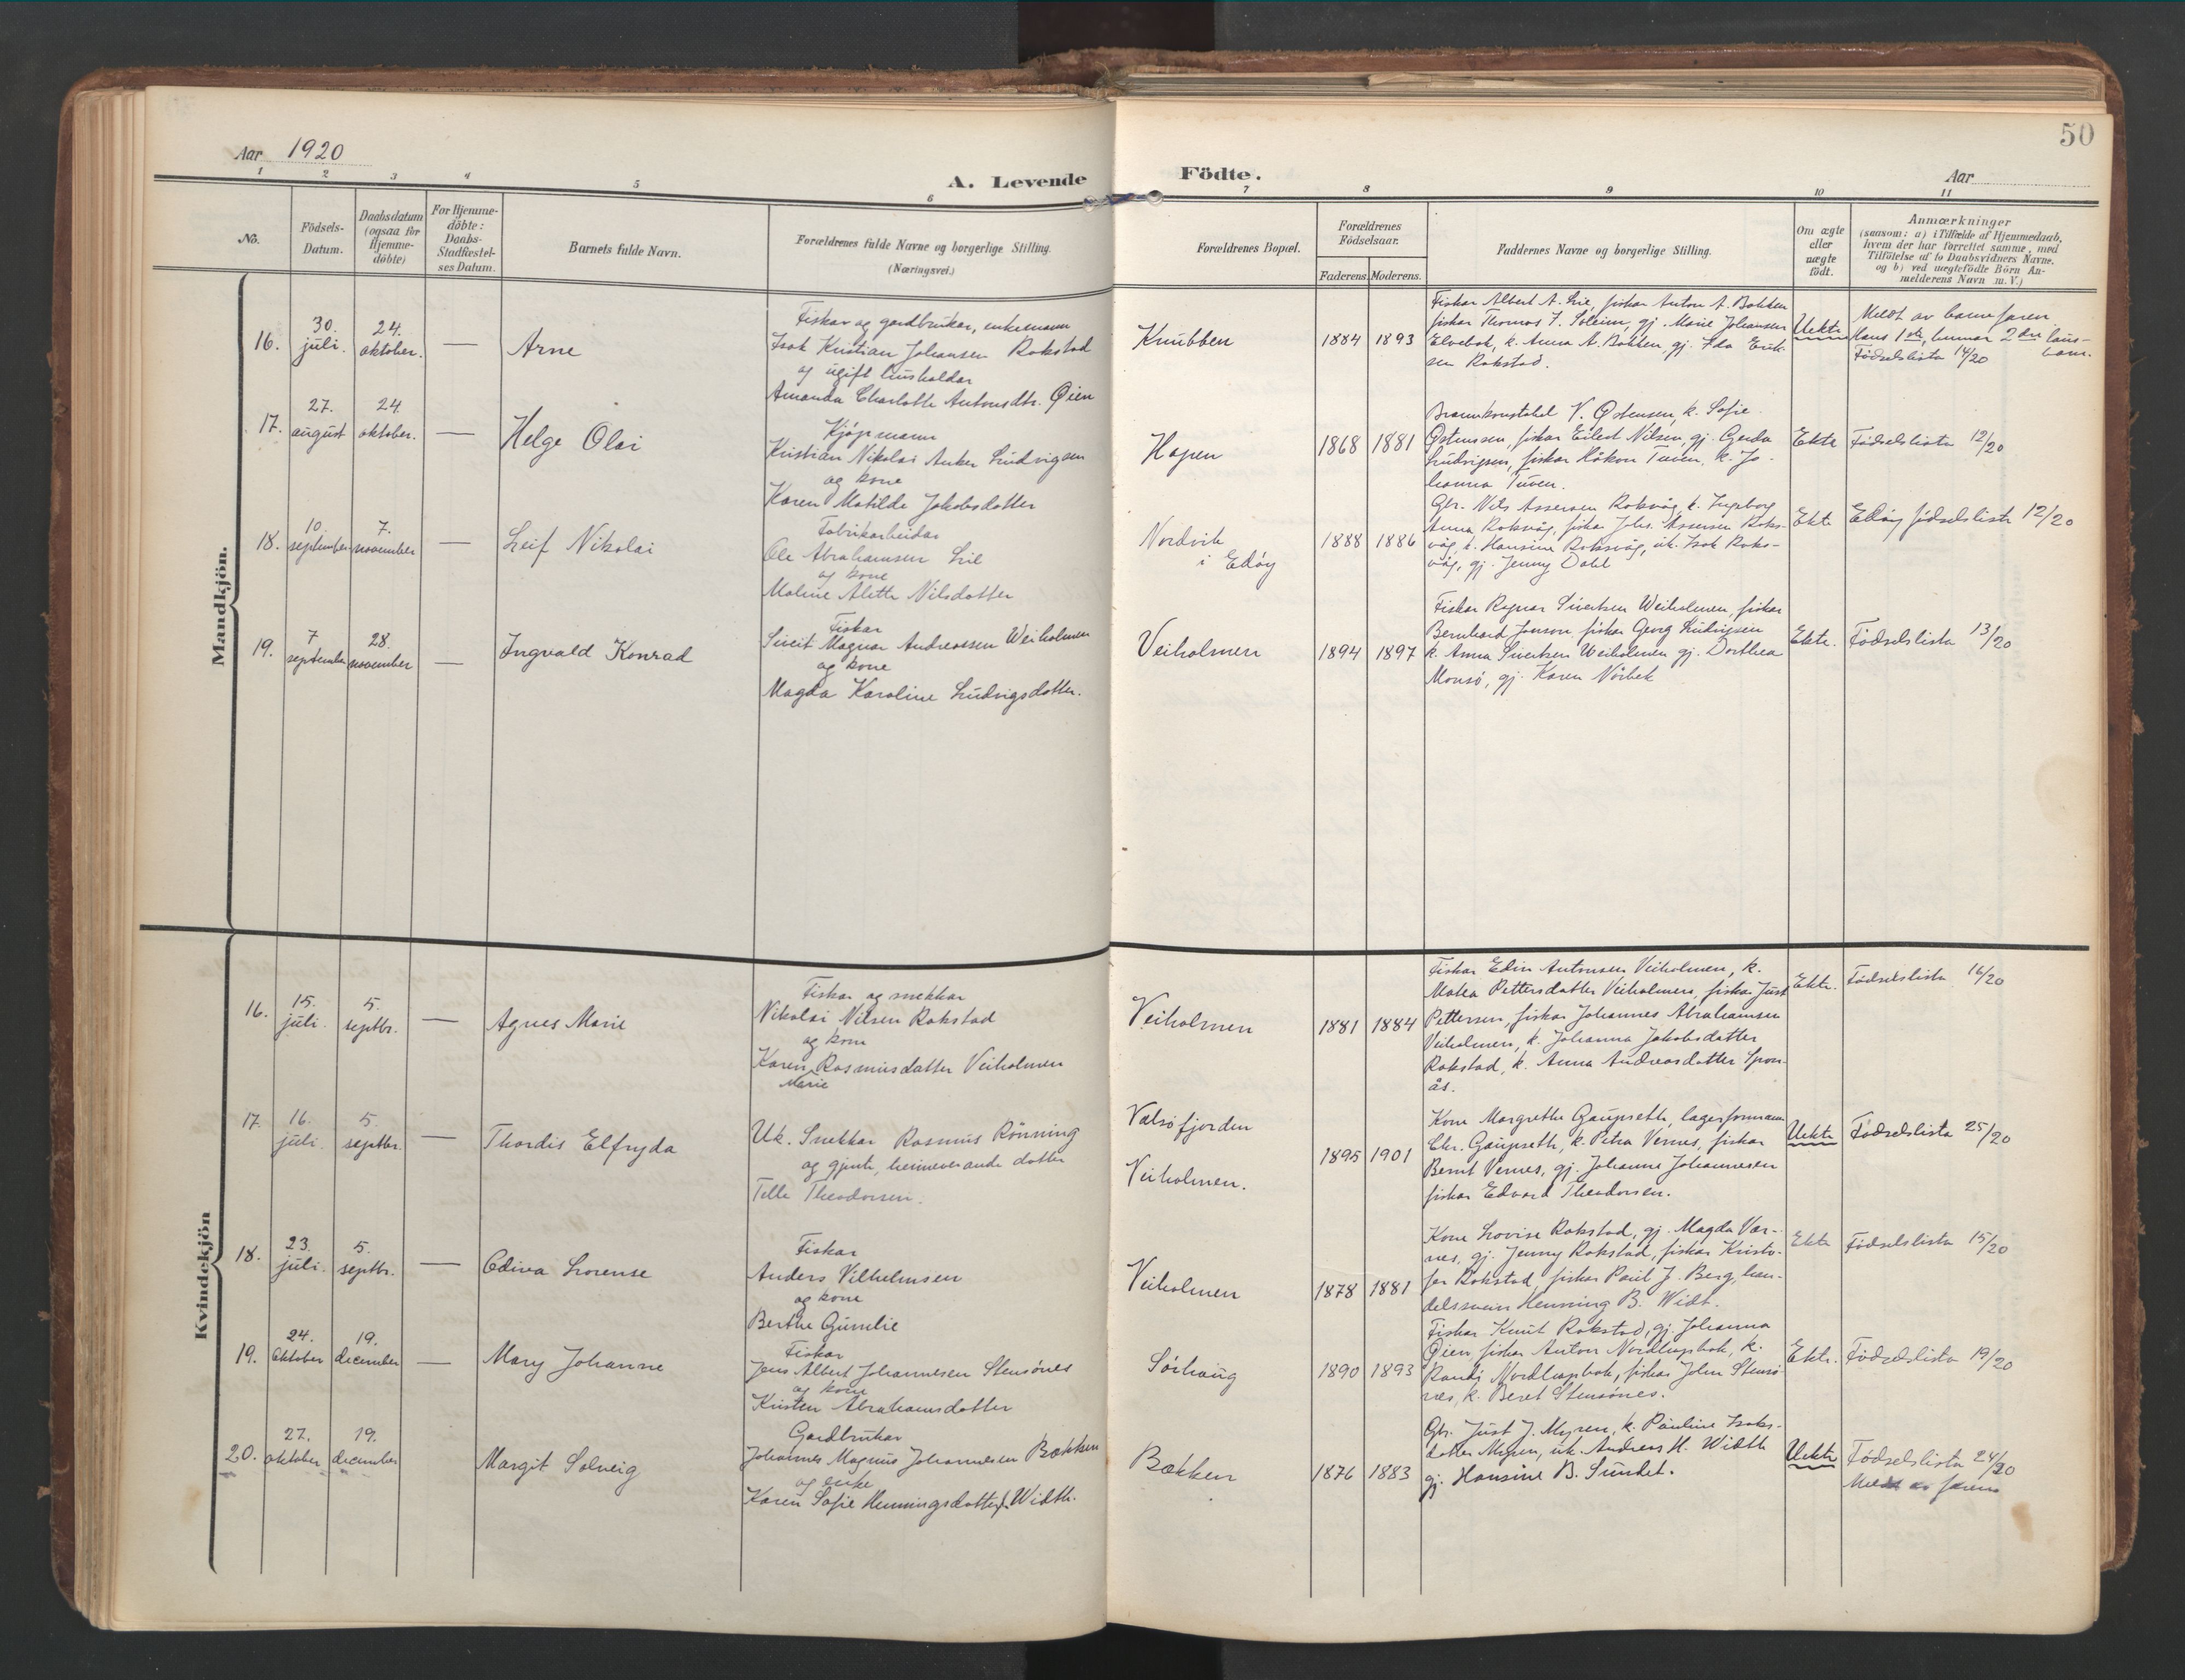 50
Aar 1920
A. Levende Födte.
Aar
1 2 3 4 5 6 7 8 9 10 11
No.
Födsels-
Datum.
Daabsdatum
(ogsaa for
Hjemme-
döbte)
For Hjemme-
döbte:
Daabs-
Stadfæstel-
ses Datum.
Barnets fulde Navn.
Forældrenes fulde Navne og borgerlige Stilling.
(Næringsvei.)
Forældrenes Bopæl.
Forældrenes
Födselsaar.
Faderens. Moderens.
Faddernes Navne og borgerlige Stilling.
Om ægte
eller
uægte
födt.
Anmærkninger
(saasom: a) i Tilfælde af Hjemmedaab,
hvem der har forrettet samme, med
Tilföielse af to Daabsvidners Navne,
og b) ved uægtefödte Börn An-
melderens Navn m. V.)
Mandkjön.
16.
30.
juli.
24.
oktober.
—
Arne
Fiskar og gardbrukar, enkemann
Isak Kristian Johansen Rokstad
og ugift husholdar
Amanda Charlotte Antonsdtr. Øien
Knubben
1884 1893
Fiskar Albert A. Lie, fiskar Anton A. Bakken
fiskar Thomas J. Soleim, gj. Marie Johansen
k. Anna A. Bakken, gj. Ida Erik-
sen Rokstad.
Uekte
Meldt av barnefaren
Hans 1ste, hennar 2dre laus-
barn.
Födselslista 14/20
17.
27.
august
24.
oktober.
—
Helge Olai
Kjöpmann
Kristian Nikolai Anker Ludvigsen
og kone
Karen Matilde Jakobsdatter
Hopen
1868 1881
V. Østensen, k. Sofie
Østensen, fiskar Eilert Nilsen, gj. Gerda
Ludvigsen, fiskar Håkon Tuven, k. Jo-
hanna Tuven.
Ekte
Födselslista 12/20
18.
10.
september
7.
november
—
Leif Nikolai
Fabrikarbeidar
Ole Abrahamsen Lie
og kone
Maline Alette Nilsdatter
Nordvik
i Edöy
1888 1886
Gbr. Nils Assersen Roksvåg, k. Ingeborg
Anna Roksvåg, fiskar Johs. Assersen Roks-
våg, k. Hansine Roksvåg, uk. Isak Roks-
våg, gj. Jenny Dahl
Ekte
Edöy födselsliste 12/20
19.
7
september
28.
november
—
Ingvald Konrad
Fiskar
Sivert Magnar Andreassen Weiholmen
og kone
Magda Karoline Ludvigsdatter.
Veiholmen
1894 1897
Fiskar Ragnar Sivertsen Weiholmen, fiskar
Bernhard Jonson, fiskar Georg Ludvigsen
k. Anna Sivertsen Weiholmen gj. Dorthea
Monsö, gj. Karen Nörbek
Ekte.
Födselslista 13/20
Kvindekjön
16.
15.
juli.
5.
septbr.
—
Agnes Marie
Fiskar og snekkar
Nikolai Nilsen Rokstad
og kone
Karen Rasmusdatter Veiholmen
Marie
Veiholmen
1881 1884
Fiskar Edin Antonsen Veiholmen, k.
Malea Pettersdatter Veiholmen, fiskar Just
Pettersen, fiskar Johannes Abrahamsen
Veiholmen, k. Johanna Jakobsdatter
Rokstad, k. Anna Andreasdatter Spon-
ås.
Ekte.
Födselslista 16/20
17.
16.
juli.
5.
septbr.
—
Thordis Elfryda
Uk. Snekkar Rasmus Rönning
og gjente, heimeverande dotter
Tella Theodorsen.
Valsöfjorden
Veiholmen.
1895 1901
Kone Margrethe Gaupseth, lagerformann
Chr. Gaupseth, k. Petra Vernes, fiskar
Bernt Vernes, gj. Johanne Johannesen
fiskar Edvard Theodorsen.
Uekte
Födselslista 25/20
18.
23.
juli.
5.
septbr.
—
Odiva Lorense
Fiskar
Anders Vilhelmsen
og kone
Berthe Gunelie
Veiholmen
1878 1881
Kone Lovise Rokstad, gj. Magda Vær-
nes, gj. Jenny Rokstad, fiskar Kristo-
fer Rokstad, fiskar Paul J. Berg, han-
delsmann Henning B. Widt.
Ekte
Födselslista 15/20
19.
24.
oktober
19.
december
—
Mary Johanne
Fiskar
Jens Albert Johannesen Stensönes
og kone
Kristen Abrahamsdatter
Sörhaug
1890 1893
Fiskar Knut Rokstad, gj. Johanna
Øien, fiskar Anton Nordhapbok, k.
Randi Nordhapbok, fiskar John Stensö-
nes, k. Beret Stensönes.
Ekte.
Födselslista 19/20
20.
27.
oktober
19.
december
Margit Solveig
Gardbrukar
Johannes Magnus Johannesen Bakken
og enke
Karen Sofie Henningsdatter f. Width.
Bakken
1876 1883
Gbr. Just J. Myren, k. Pauline Isaks-
datter Myren, uk. Andreas H. Width
gj. Hansine B. Sundet.
Uekte
Födselslista 24/20
Meldt av faren